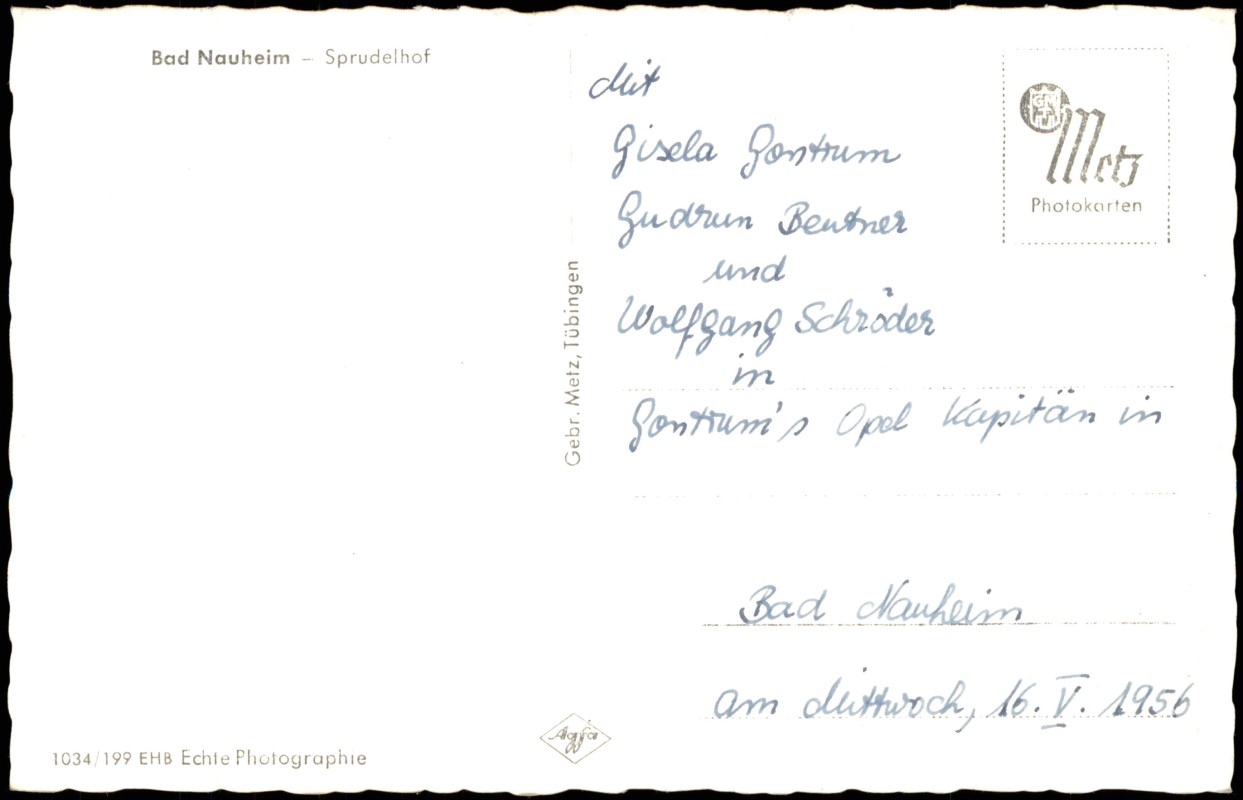 Bad Nauheim – Sprudelhof
Mit
Gisela Gontrum
Gudrun Beutner
und
Wolfgang Schröder
in
Gontrum's Opel Kapitän in
Bad Nauheim
am Mittwoch, 16. V. 1956
GM
Metz
Photokarten
Gebr. Metz, Tübingen
Agfa
1034/199 EHB Echte Photographie